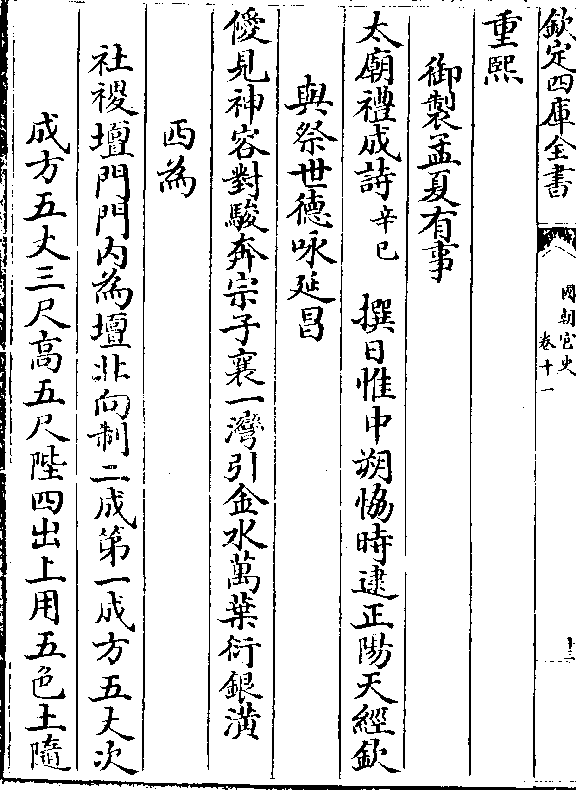 欽定四庫全書
國朝宫史
卷十一
十三
重熙
御製孟夏有事
太廟禮成詩辛巳 撰日惟中朔恊時逮正陽天經欽
與祭世德咏延昌
僾見神容對駿奔宗子襄一灣引金水萬葉衍銀潢
西為
社稷壇門門内為壇北向制二成第一成方五丈次
成方五丈三尺髙五尺陛四出上用五色土隨